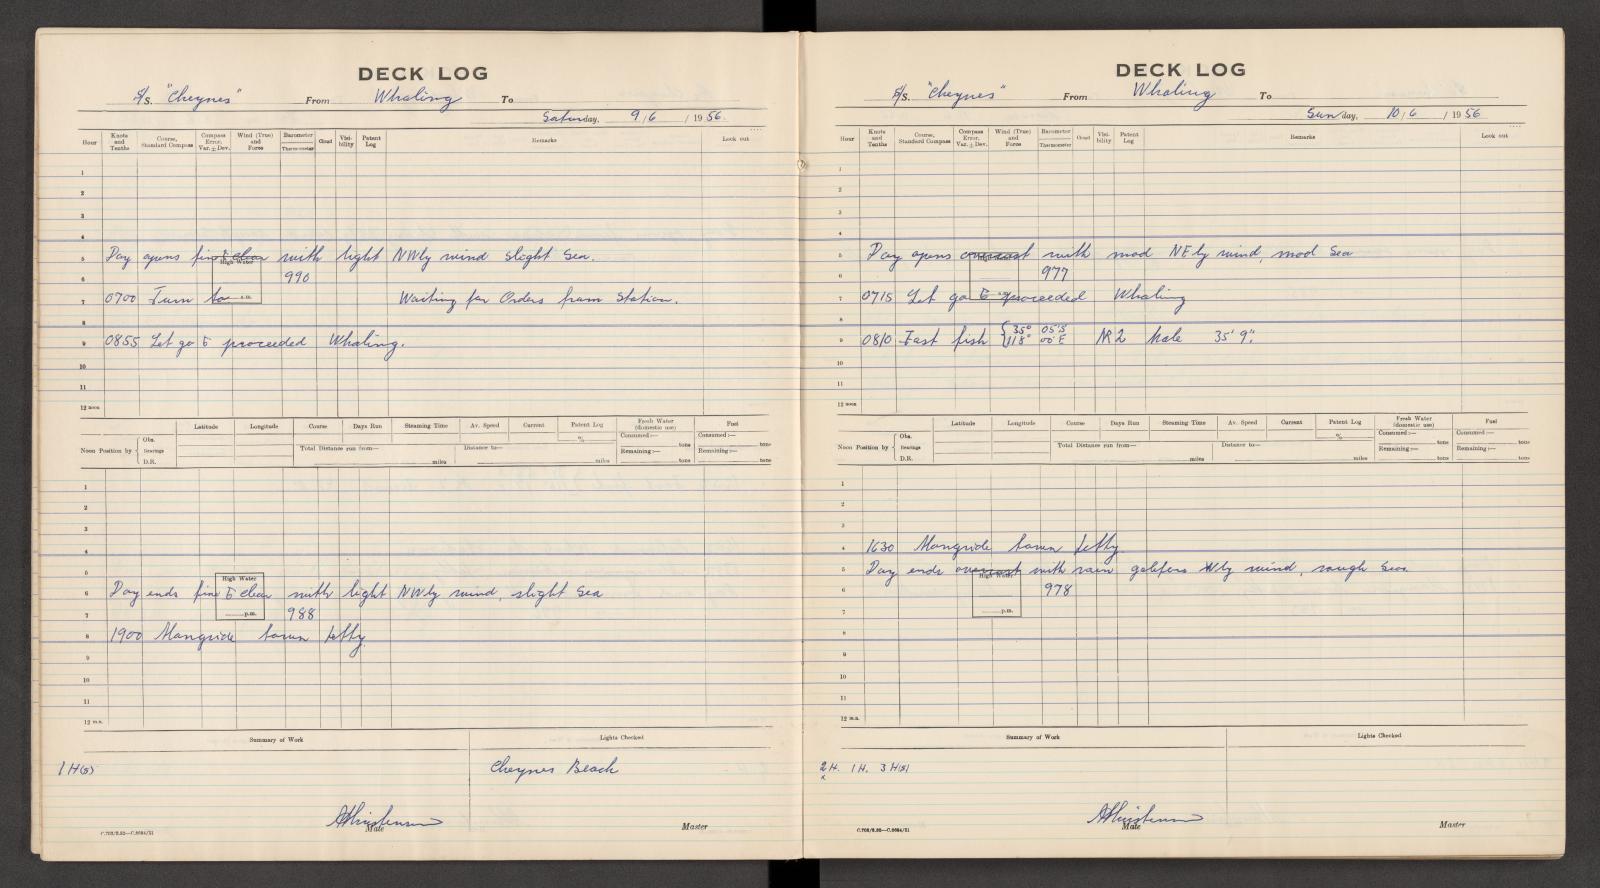 DECK LOG
S/S. "Cheynes" From Whaling To
Saturday, 9/6 / 1956.
Hour Knots and Tenths Course, Standard Compass Compass Error. Var. ± Dev. Wind (True) and Force Barometer Thermometer Cloud Visibility Patent Log Remarks Look out
1
2
3
4
5 Day opens fine & clear with light NWly wind slight Sea.
High Water
6 990
a.m.
7 0700 Turn to Waiting for Orders from Station.
8
9 0855 Let go & proceeded Whaling.
10
11
12 noon
Latitude Longitude Course Days Run Steaming Time Av. Speed Current Patent Log Fresh Water (domestic use) Fuel
% Consumed:— tons Consumed:— tons
Noon Position by Obs. Bearings D.R. Total Distance run from— miles Distance to— miles Remaining:— tons Remaining:— tons
1
2
3
4
5
High Water
6 Day ends fine & clear with light NWly wind, slight Sea
7 988
p.m.
8 1900 Alongside town Jetty.
9
10
11
12 m.n.
Summary of Work Lights Checked
1 H(s) Cheynes Beach
AChristensen
Mate Master
C.702/8.52—C.9694/51
DECK LOG
S/S. "Cheynes" From Whaling To
Sunday, 10/6 / 1956
Hour Knots and Tenths Course, Standard Compass Compass Error. Var. ± Dev. Wind (True) and Force Barometer Thermometer Cloud Visibility Patent Log Remarks Look out
1
2
3
4
5 Day opens overcast with mod NEly wind, mod Sea
High Water
6 977
a.m.
7 0715 Let go & proceeded Whaling
8
9 0810 Fast fish { 35° 05'S 118° 00'E NR 2 Male 35' 9".
10
11
12 noon
Latitude Longitude Course Days Run Steaming Time Av. Speed Current Patent Log Fresh Water (domestic use) Fuel
% Consumed:— tons Consumed:— tons
Noon Position by Obs. Bearings D.R. Total Distance run from— miles Distance to— miles Remaining:— tons Remaining:— tons
1
2
3
4 1630 Alongside town Jetty.
5 Day ends overcast with rain Wly wind, rough Sea
High Water
6 978
7
p.m.
8
9
10
11
12 m.n.
Summary of Work Lights Checked
2 H. 1 H. 3 H(s)
x
AChristensen
Mate Master
C.702/8.52—C.9694/51